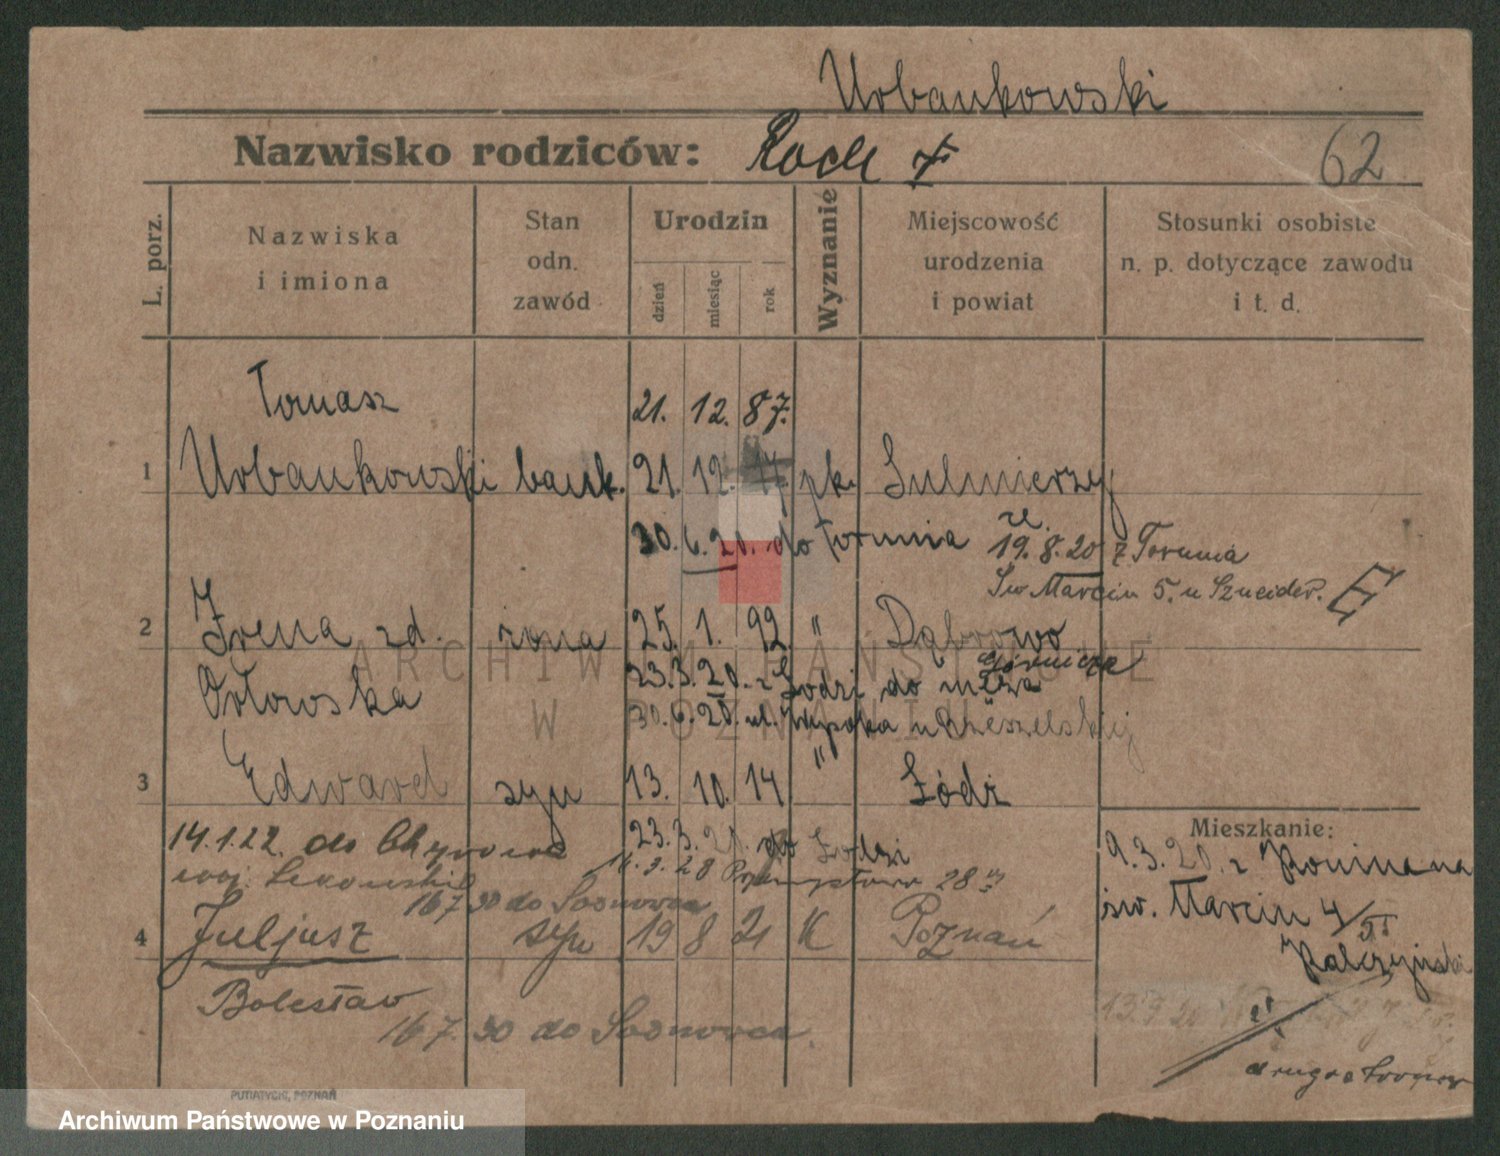 Urbankowski
Nazwisko rodziców: Roch †
62
L. porz.
Nazwiska i imiona
Stan odn. zawód
Urodzin
dzień miesiąc rok
Wyznanie
Miejscowość urodzenia i powiat
Stosunki osobiste n. p. dotyczące zawodu i t. d.
Tomasz 21. 12. 87.
1 Urbankowski bank. 21. 12. rk. Sulmierzyce
30. 6. 20. do Torunia
19. 8. 20 z Torunia
Św. Marcin 5. u Szneider. E
2 Irena zd. żona 25. 1. 92 " Dąbrowo
Górnicza
Orłowska 23. 3. 20. z Łodzi do męża
30. 6. 20. ul.
3 Edward syn 13. 10. 14 " Łódź
23. 3. 21. do Łodzi
Mieszkanie:
14. 1. 22. do Chyrowa
woj. 11. 9. 28 Przemysłowa 28
16 7. 30 do Sosnowca
9. 3. 20. z
św. Marcin 4/II
4 Juljusz syn 19 8 21 K Poznań
Bolesław
16 7. 30 do Sosnowca.
13. 9 20
druga strona
PUTIATYCKI, POZNAŃ
ARCHIWUM PAŃSTWOWE
W POZNANIU
Archiwum Państwowe w Poznaniu